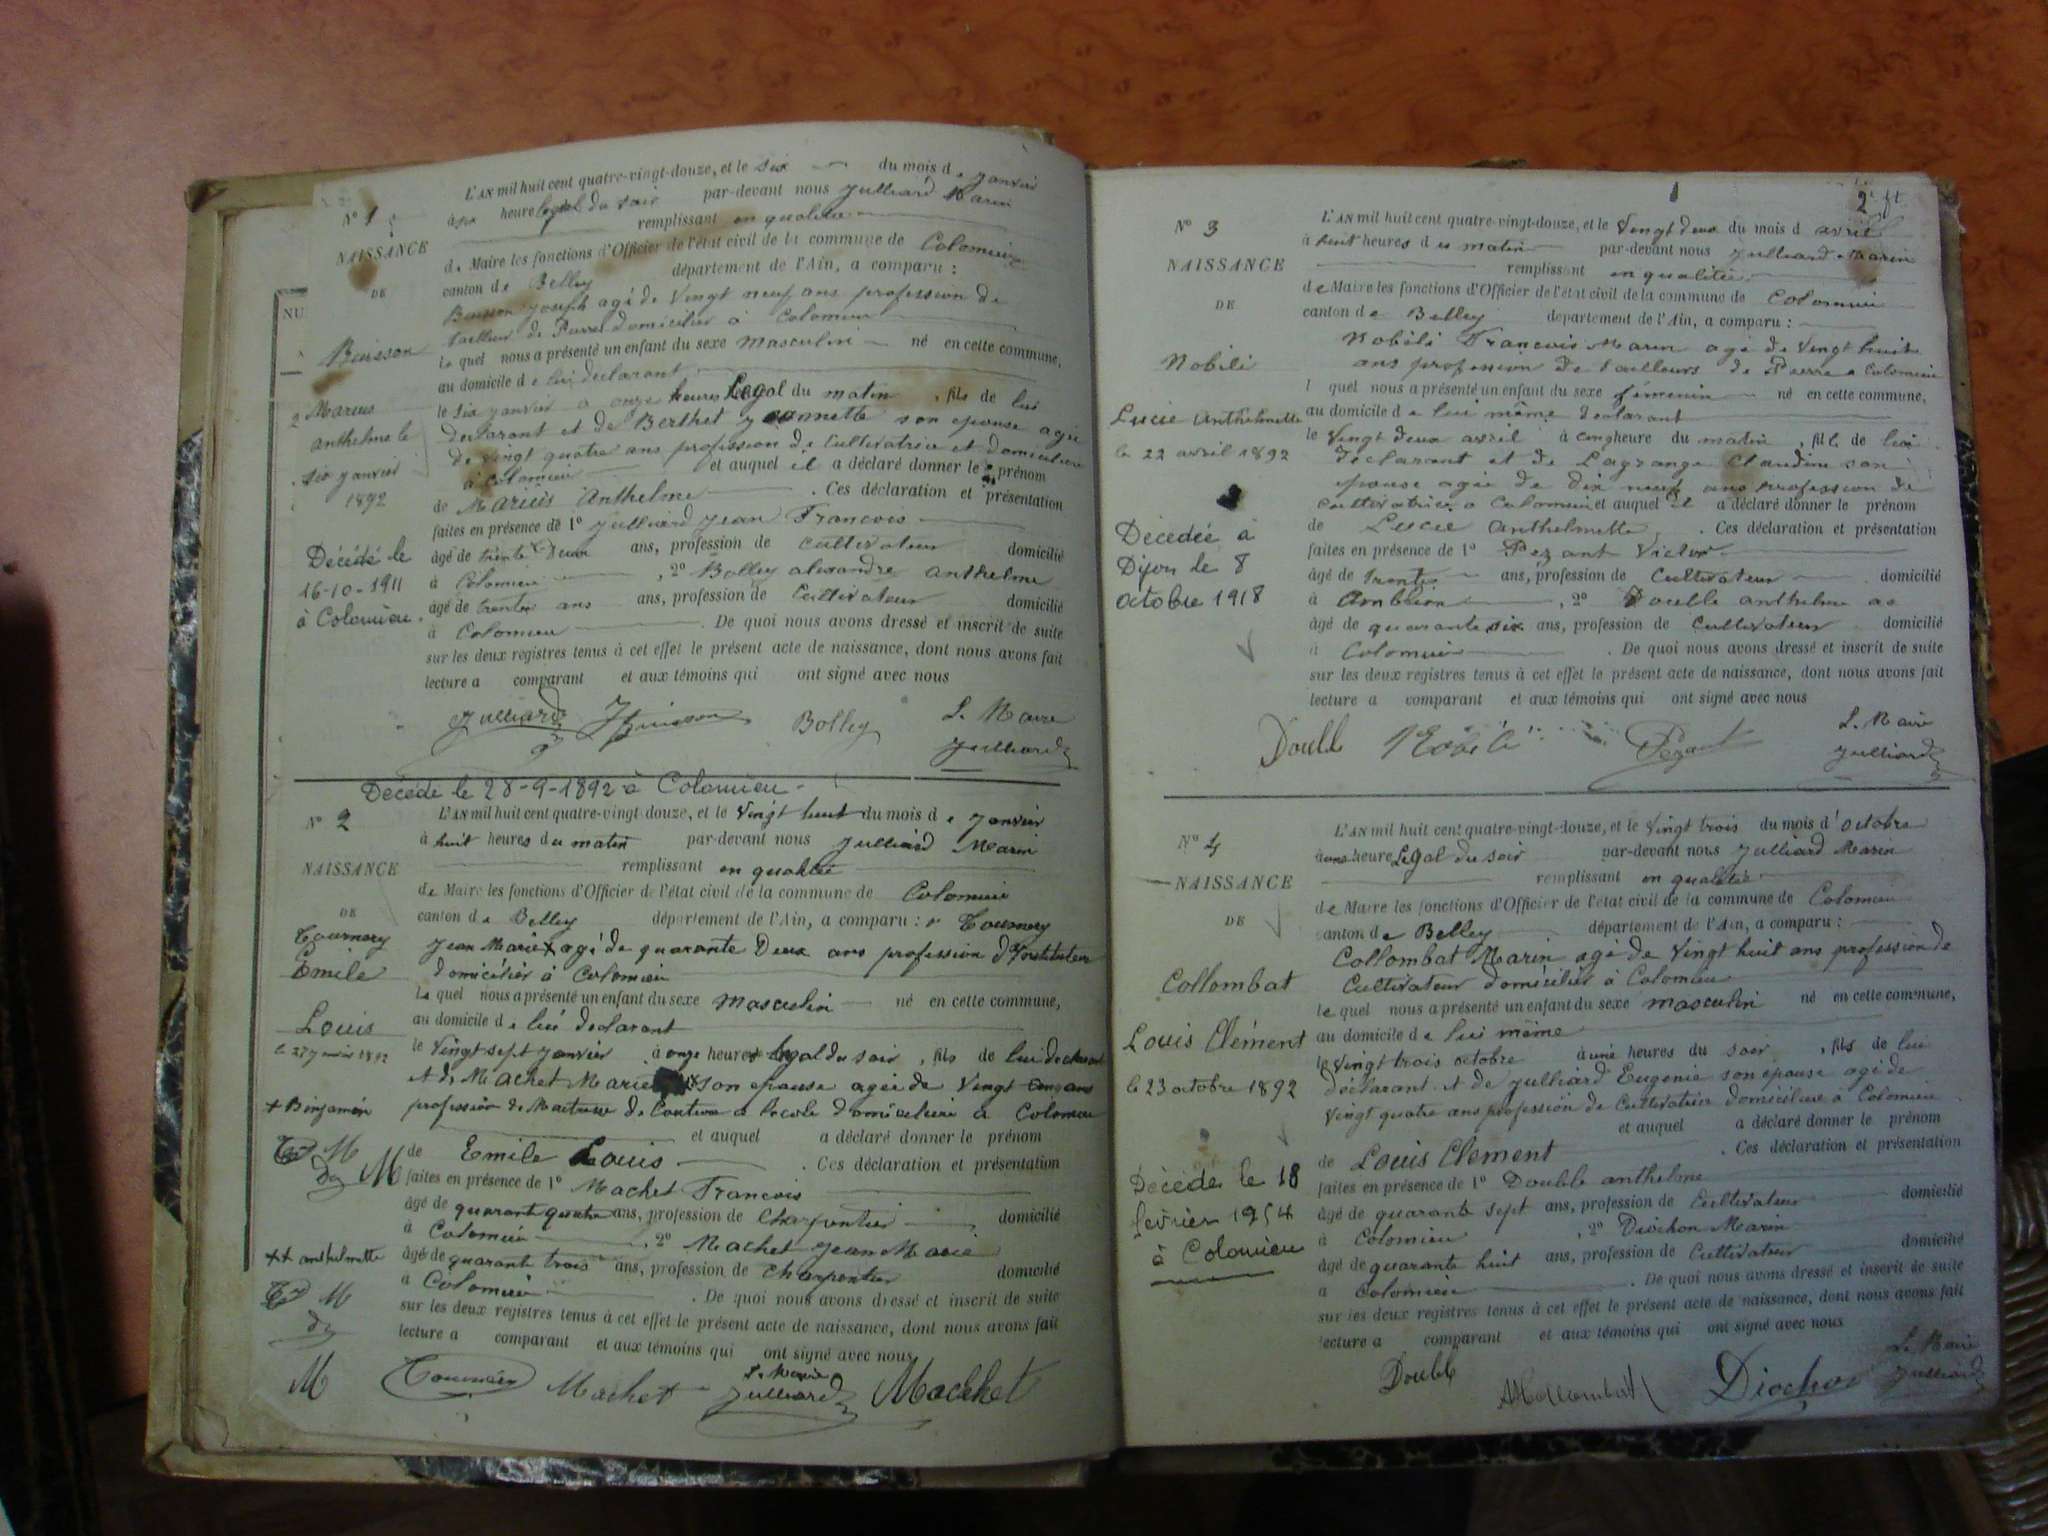 N° 1
NAISSANCE
DE
Buisson
Marius
anthelme le
six janvier
1892
Décédé le
16-10-1911
à Colomieu.
L'AN mil huit cent quatre-vingt-douze, et le six du mois de janvier
heure légal du soir par-devant nous Julliard Marin
remplissant en qualitée
de Maire les fonctions d'Officier de l'état civil de la commune de Colomieu
canton de Belley département de l'Ain, a comparu :
Buisson joseph agé de Vingt neuf ans profession de
tailleur de Pierre domicilier à Colomieu
le quel nous a présenté un enfant du sexe masculin né en cette commune,
au domicile de lui déclarant
le six janvier à onze heures légal du matin, fils de lui
declarant et de Berthet jeannette son epouse agée
de vingt quatre ans profission de Cultivatrice et domiciliere
à Colomieu et auquel il a déclaré donner le prénom
de Marius Anthelme. Ces déclaration et présentation
faites en présence de 1° Julliard Jean François
âgé de trente Deux ans, profession de Cultivateur domicilié
à Colomieu, 2° Bolley alexandre anthelme
âgé de trente ans ans, profession de Cultivateur domicilié
à Colomieu. De quoi nous avons dressé et inscrit de suite
sur les deux registres tenus à cet effet le présent acte de naissance, dont nous avons fait
lecture a comparant et aux témoins qui ont signé avec nous
Julliard JBuisson Bolley L. Maire
Julliard
Décédé le 28-9-1892 à Colomieu.
N° 2
NAISSANCE
DE
Tournery
Emile
Louis
le 27 janvier 1892
+ Binjamin
++ anthelmette
L'AN mil huit cent quatre-vingt-douze, et le Vingt huit du mois de janvier
à huit heures du matin par-devant nous Julliard Marin
remplissant en qualitée
de Maire les fonctions d'Officier de l'état civil de la commune de Colomieu
canton de Belley département de l'Ain, a comparu : Tournery
Jean Marie + agé de quarante Deux ans profession d'Instituteur
domicilier à Colomieu
le quel nous a présenté un enfant du sexe masculin né en cette commune,
au domicile de lui declarant
le Vingt sept janvier à onze heures légal du soir, fils de lui declarant
et de Machet Marie son epouse agée de Vingt cinq ans
profession de Maitresse de Couture a l'ecole domiciliere à Colomieu
et auquel a déclaré donner le prénom
de Emile Louis. Ces déclaration et présentation
faites en présence de 1° Machet François
âgé de quarante quatre ans, profession de Charpentier domicilié
à Colomieu, 2° Machet Jean Marie
âgé de quarante trois ans, profession de Charpentier domicilié
à Colomieu. De quoi nous avons dressé et inscrit de suite
sur les deux registres tenus à cet effet le présent acte de naissance, dont nous avons fait
lecture a comparant et aux témoins qui ont signé avec nous
M Machet L. Maire Julliard Machet
2
N° 3
NAISSANCE
DE
Nobili
Lucie Anthelmette
le 22 avril 1892
Décédée à
Dijon le 8
octobre 1918
L'AN mil huit cent quatre-vingt-douze, et le Vingt deux du mois d avril
à huit heures du matin par-devant nous Julliard Marin
remplissant en qualitée
de Maire les fonctions d'Officier de l'état civil de la commune de Colomieu
canton de Belley département de l'Ain, a comparu :
Nobili François Marin agé de Vingt huit
ans profession de tailleurs de Pierre a Colomieu
l quel nous a présenté un enfant du sexe féminin né en cette commune,
au domicile de lui même declarant
le Vingt deux avril à cinq heure du matin, fil de lui
déclarant et de Lagrange Claudine son
epouse agée de dix neuf ans profession de
cultivatrice a Colomieu et auquel il a déclaré donner le prénom
de Lucie Anthelmette. Ces déclaration et présentation
faites en présence de 1° Pezant Victor
âgé de trente ans, profession de Cultivateur domicilié
à Ambléon, 2° Double anthelme
âgé de quarante six ans, profession de Cultivateur domicilié
à Colomieu. De quoi nous avons dressé et inscrit de suite
sur les deux registres tenus à cet effet le présent acte de naissance, dont nous avons fait
lecture a comparant et aux témoins qui ont signé avec nous
Double Nobili Pezant L. Maire
Julliard
N° 4
NAISSANCE
DE
Collombat
Louis Clément
le 23 octobre 1892
Décédé le 18
février 1954
à Colomieu
L'AN mil huit cent quatre-vingt-douze, et le Vingt trois du mois d'octobre
à une heure légal du soir par-devant nous Julliard Marin
remplissant en qualitée
de Maire les fonctions d'Officier de l'état civil de la commune de Colomieu
canton de Belley département de l'Ain, a comparu :
Collombat Marin agé de Vingt huit ans profession de
Cultivateur domicilier à Colomieu
le quel nous a présenté un enfant du sexe masculin né en cette commune,
au domicile de lui même
le vingt trois octobre à une heures du soir, fils de lui
déclarant et de Julliard Eugenie son epouse agé de
Vingt quatre ans profession de Cultivatrice domiciliere à Colomieu
et auquel a déclaré donner le prénom
de Louis Clement. Ces déclaration et présentation
faites en présence de 1° Double anthelme
âgé de quarante sept ans, profession de Cultivateur domicilié
à Colomieu, 2° Diochon Marin
âgé de quarante huit ans, profession de Cultivateur domicilié
à Colomieu. De quoi nous avons dressé et inscrit de suite
sur les deux registres tenus à cet effet le présent acte de naissance, dont nous avons fait
lecture a comparant et aux témoins qui ont signé avec nous
Double Collombat Diochon L. Maire
Julliard